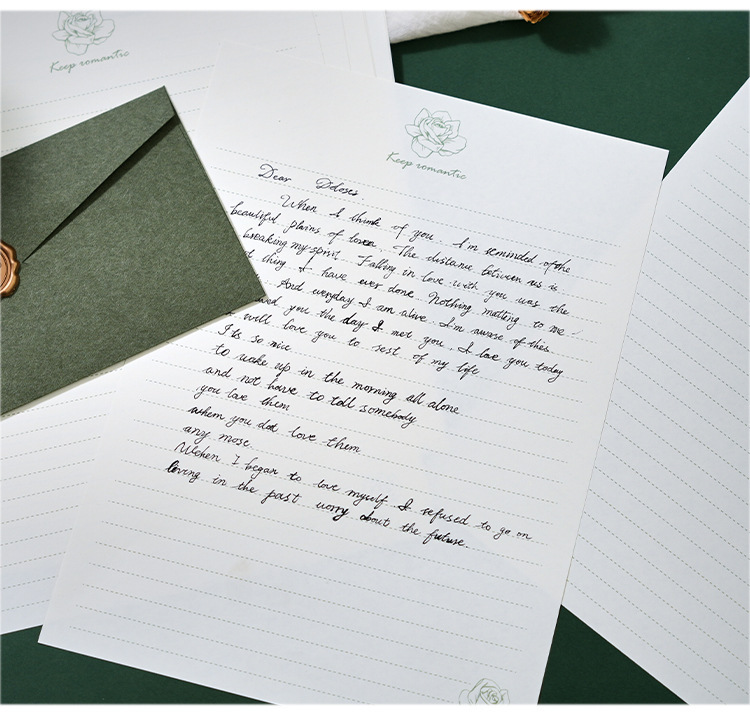 Keep romantic
Keep romantic
Dear Doloses
When I think of you. I'm reminded of the
beautiful plains of . The distance between us is
breaking my spirit. Falling in love with you was the
thing I have ever done. Nothing matting to me
And everyday I am alive. I'm aware of this
you the day I met you. I love you today
will love you to rest of my life
It's so nice
to wake up in the morning all alone
and not have to tell somebody
you love them
when you dot love them
any mose
When I began to love myself I refused to go on
loving in the past worry about the future.